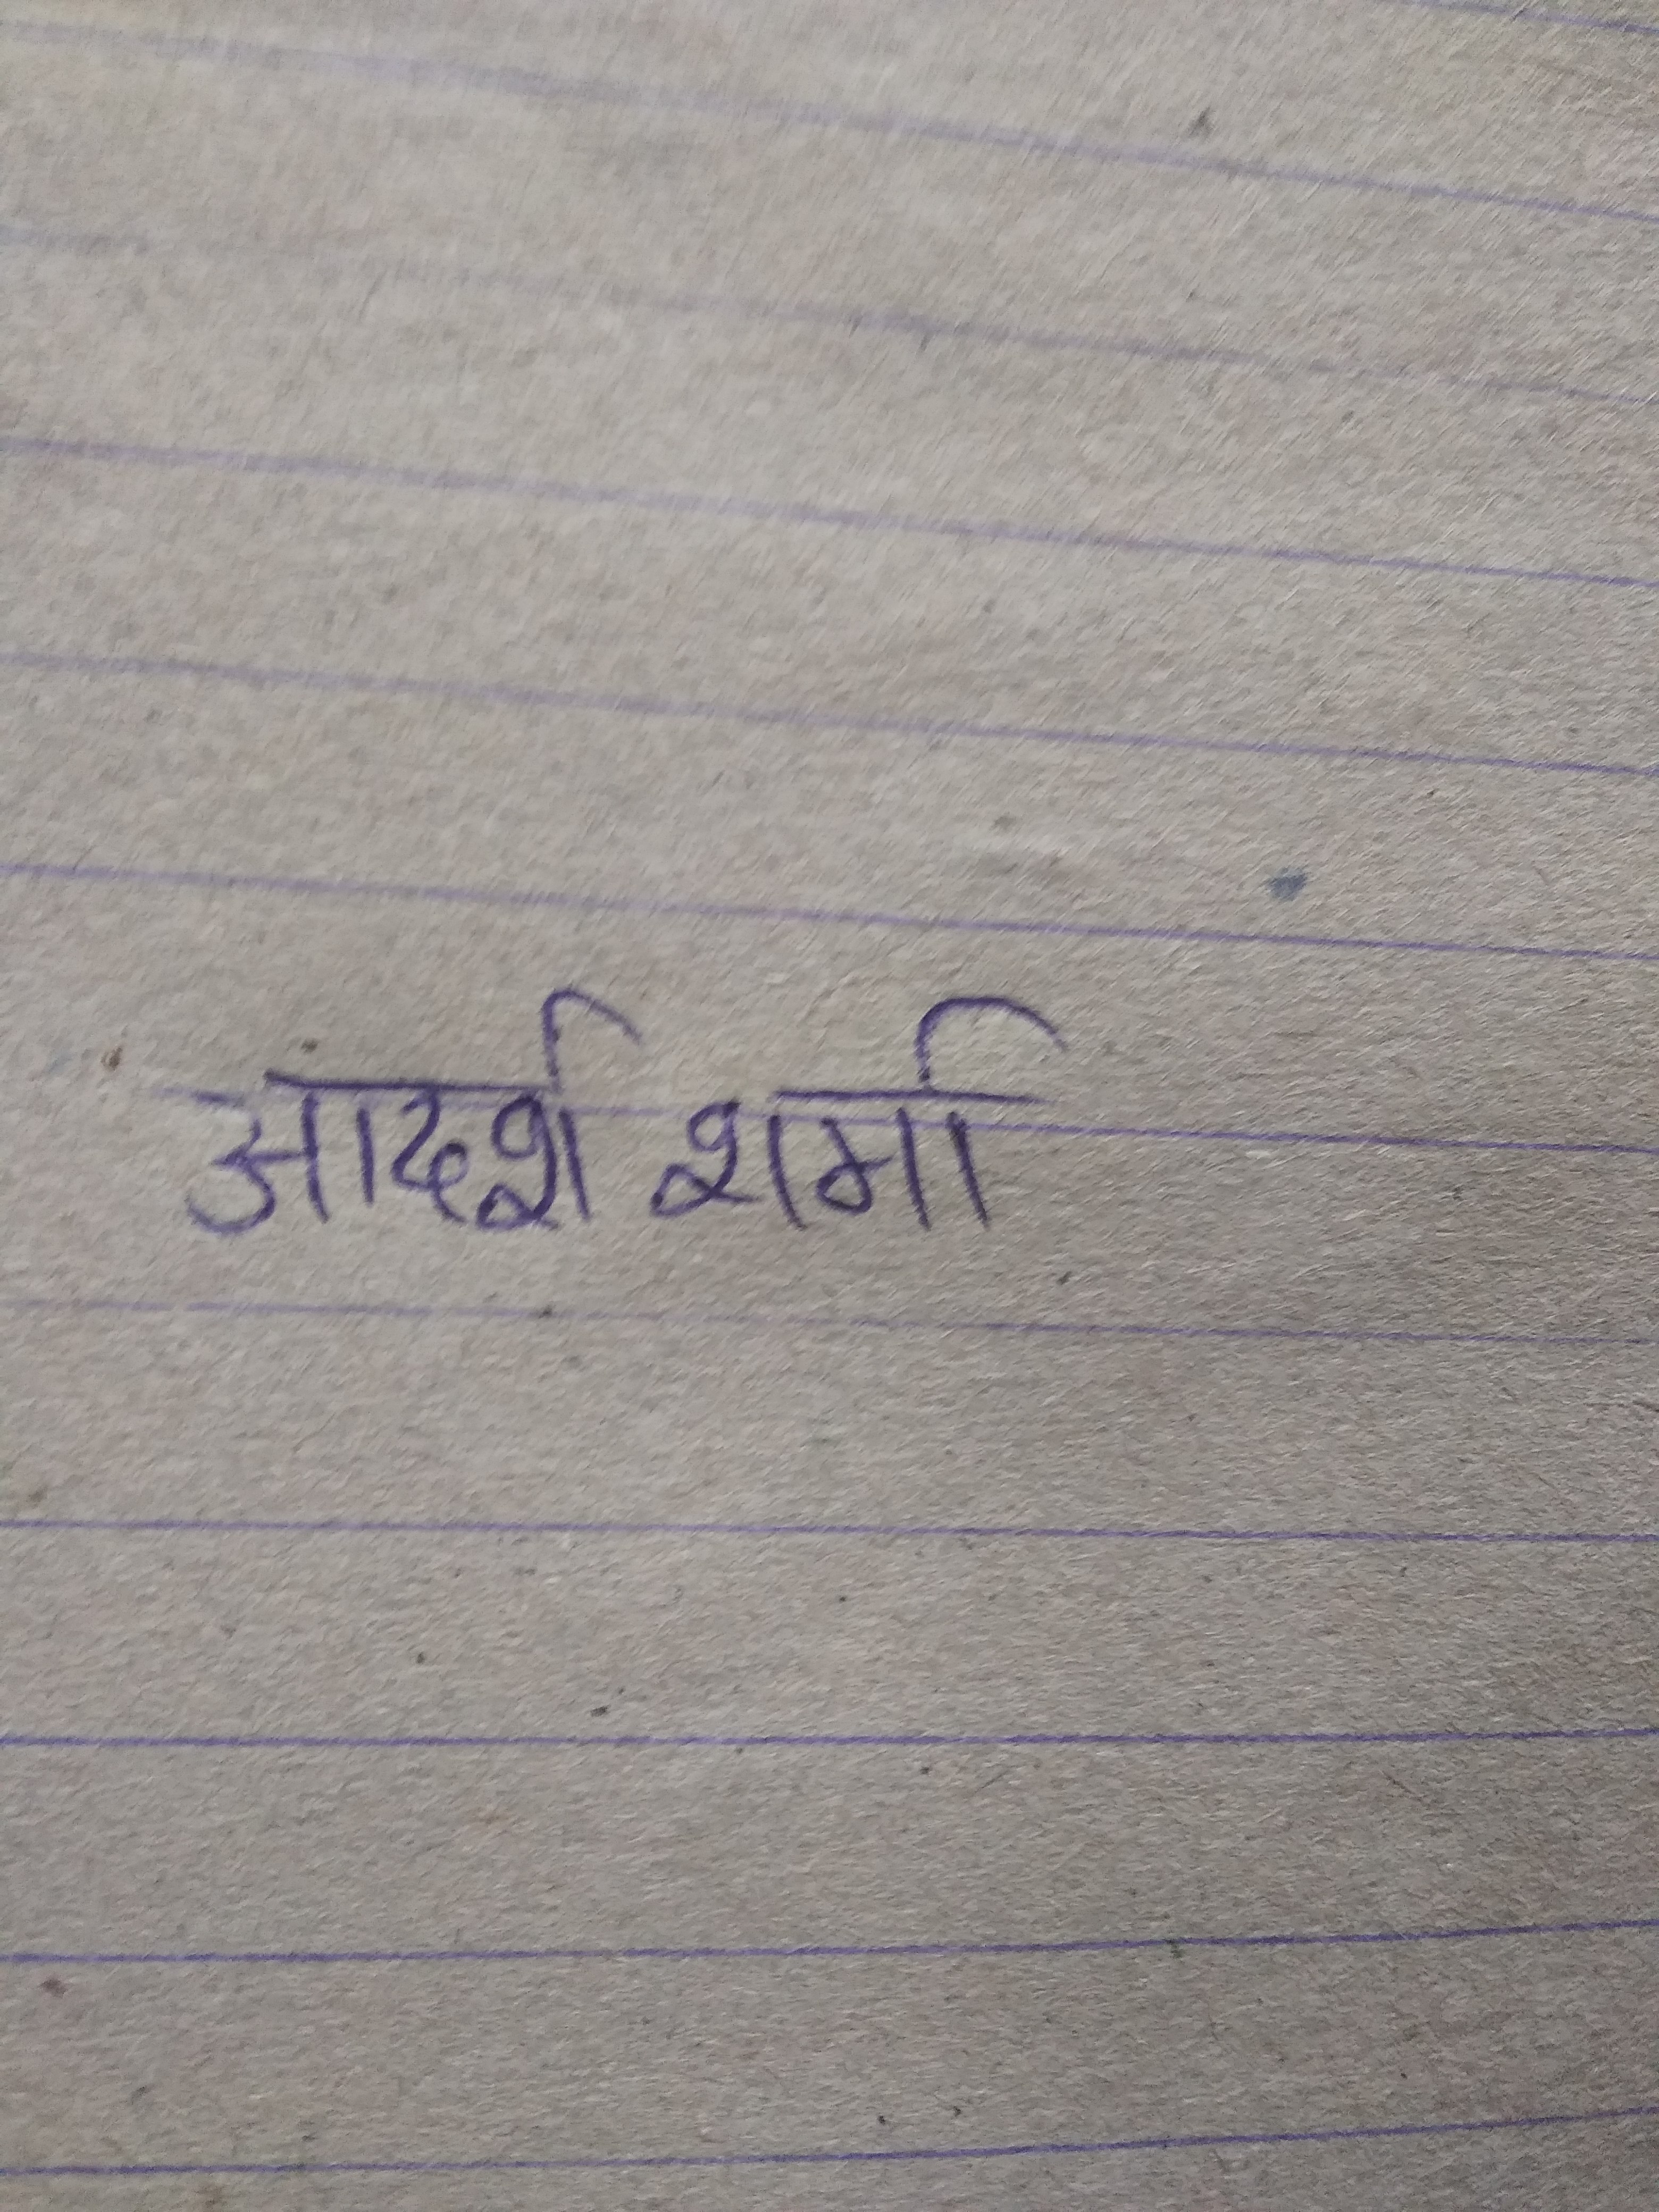 आदर्श शर्मा